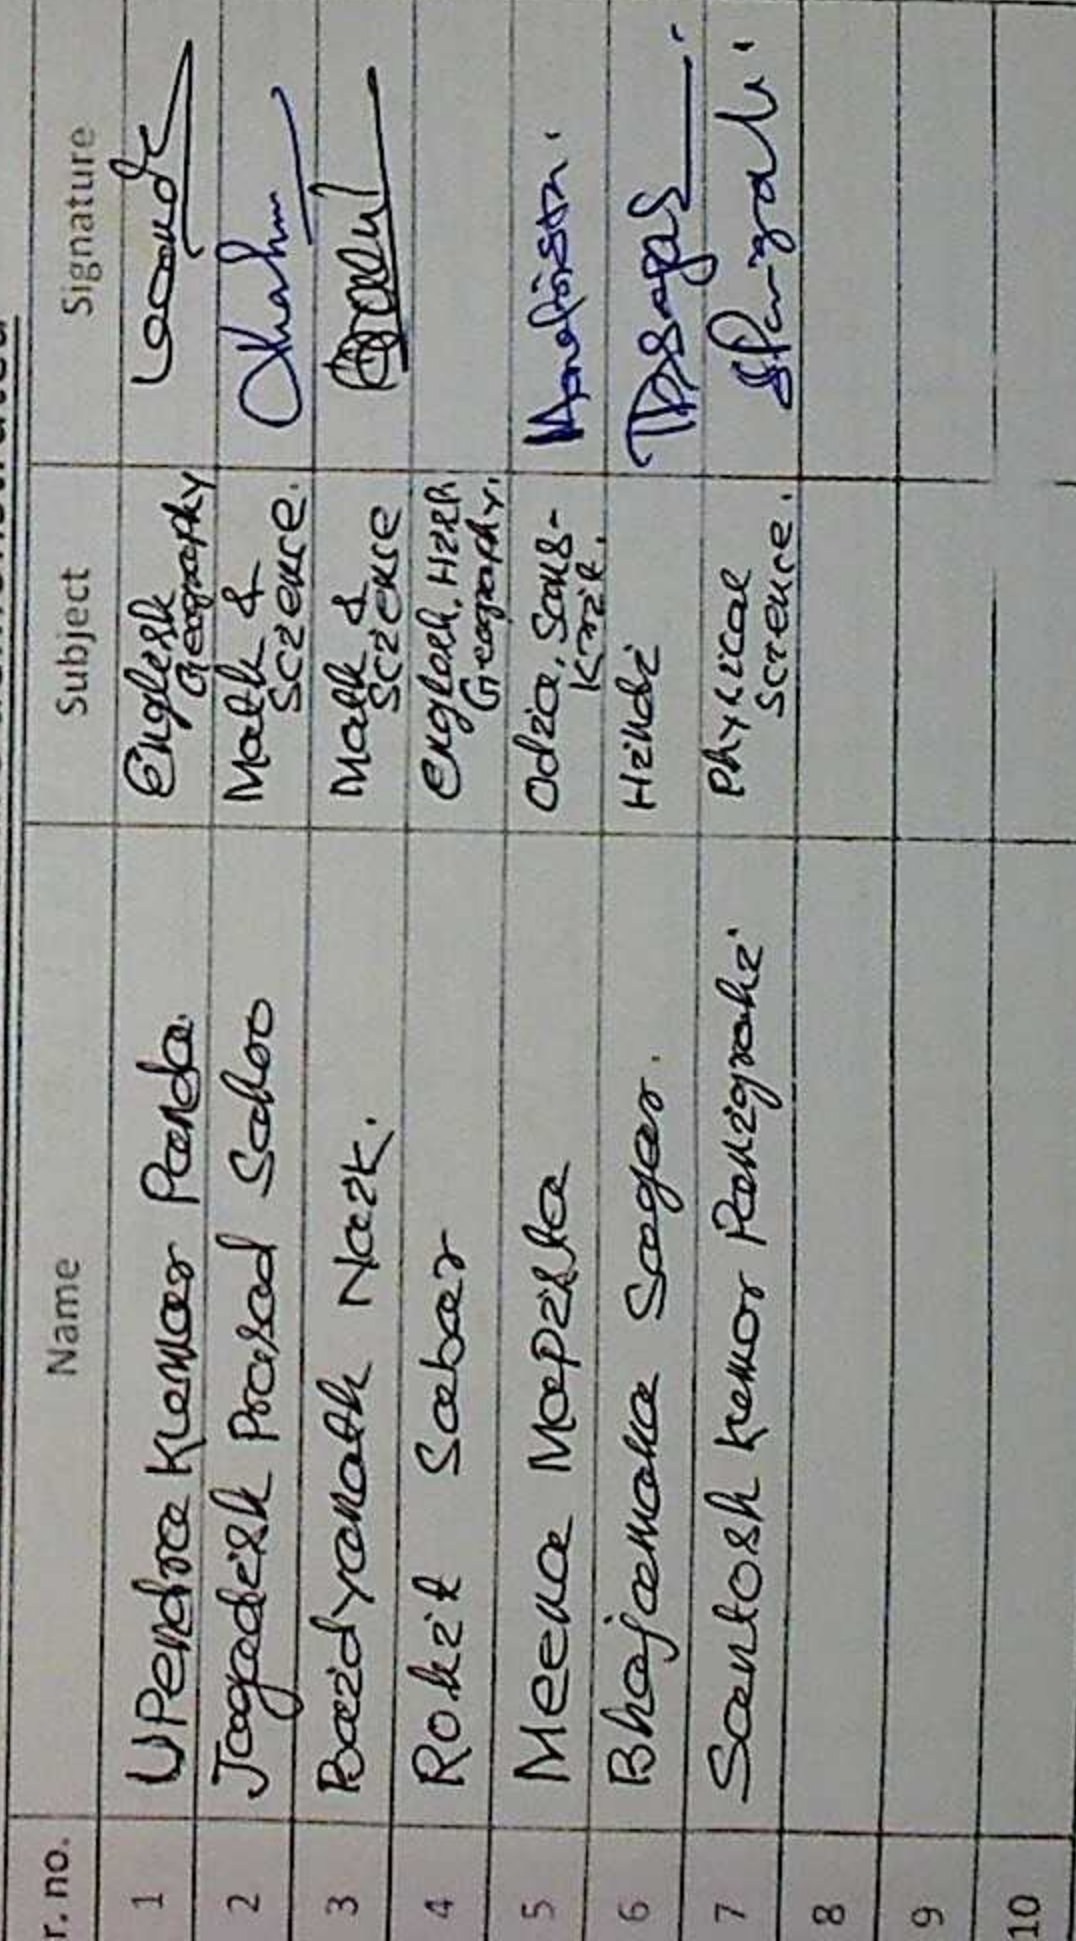 r. no. Name Subject Signature
1 Upendra Kumar Panda English Geography
2 Jagadish Prasad Sahoo Math & Science.
3 Baidyanath Naik. Math & Science
4 Rohit Sabar English, Hist. Geography.
5 Meena Mapista Odia, Sans-krit.
6 Bhajamana Sagar. Hindi
7 Santosh Kumar Panigrahi Physical Science.
8
9
10